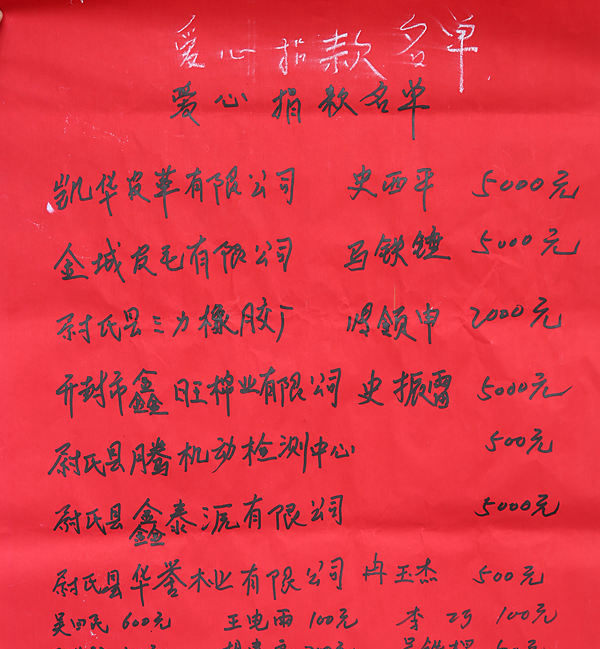 爱心捐款名单
爱心捐款名单
凯华皮革有限公司 史西平 5000元
金城皮毛有限公司 马铁锤 5000元
尉氏县三力橡胶厂 锁申 2000元
开封市鑫旺棉业有限公司 史振雷 5000元
尉氏县腾机动检测中心 500元
尉氏县鑫泰沅有限公司 5000元
尉氏县华誉木业有限公司 冉玉杰 500元
吴田民 600元 王电雨 100元 李巧 100元